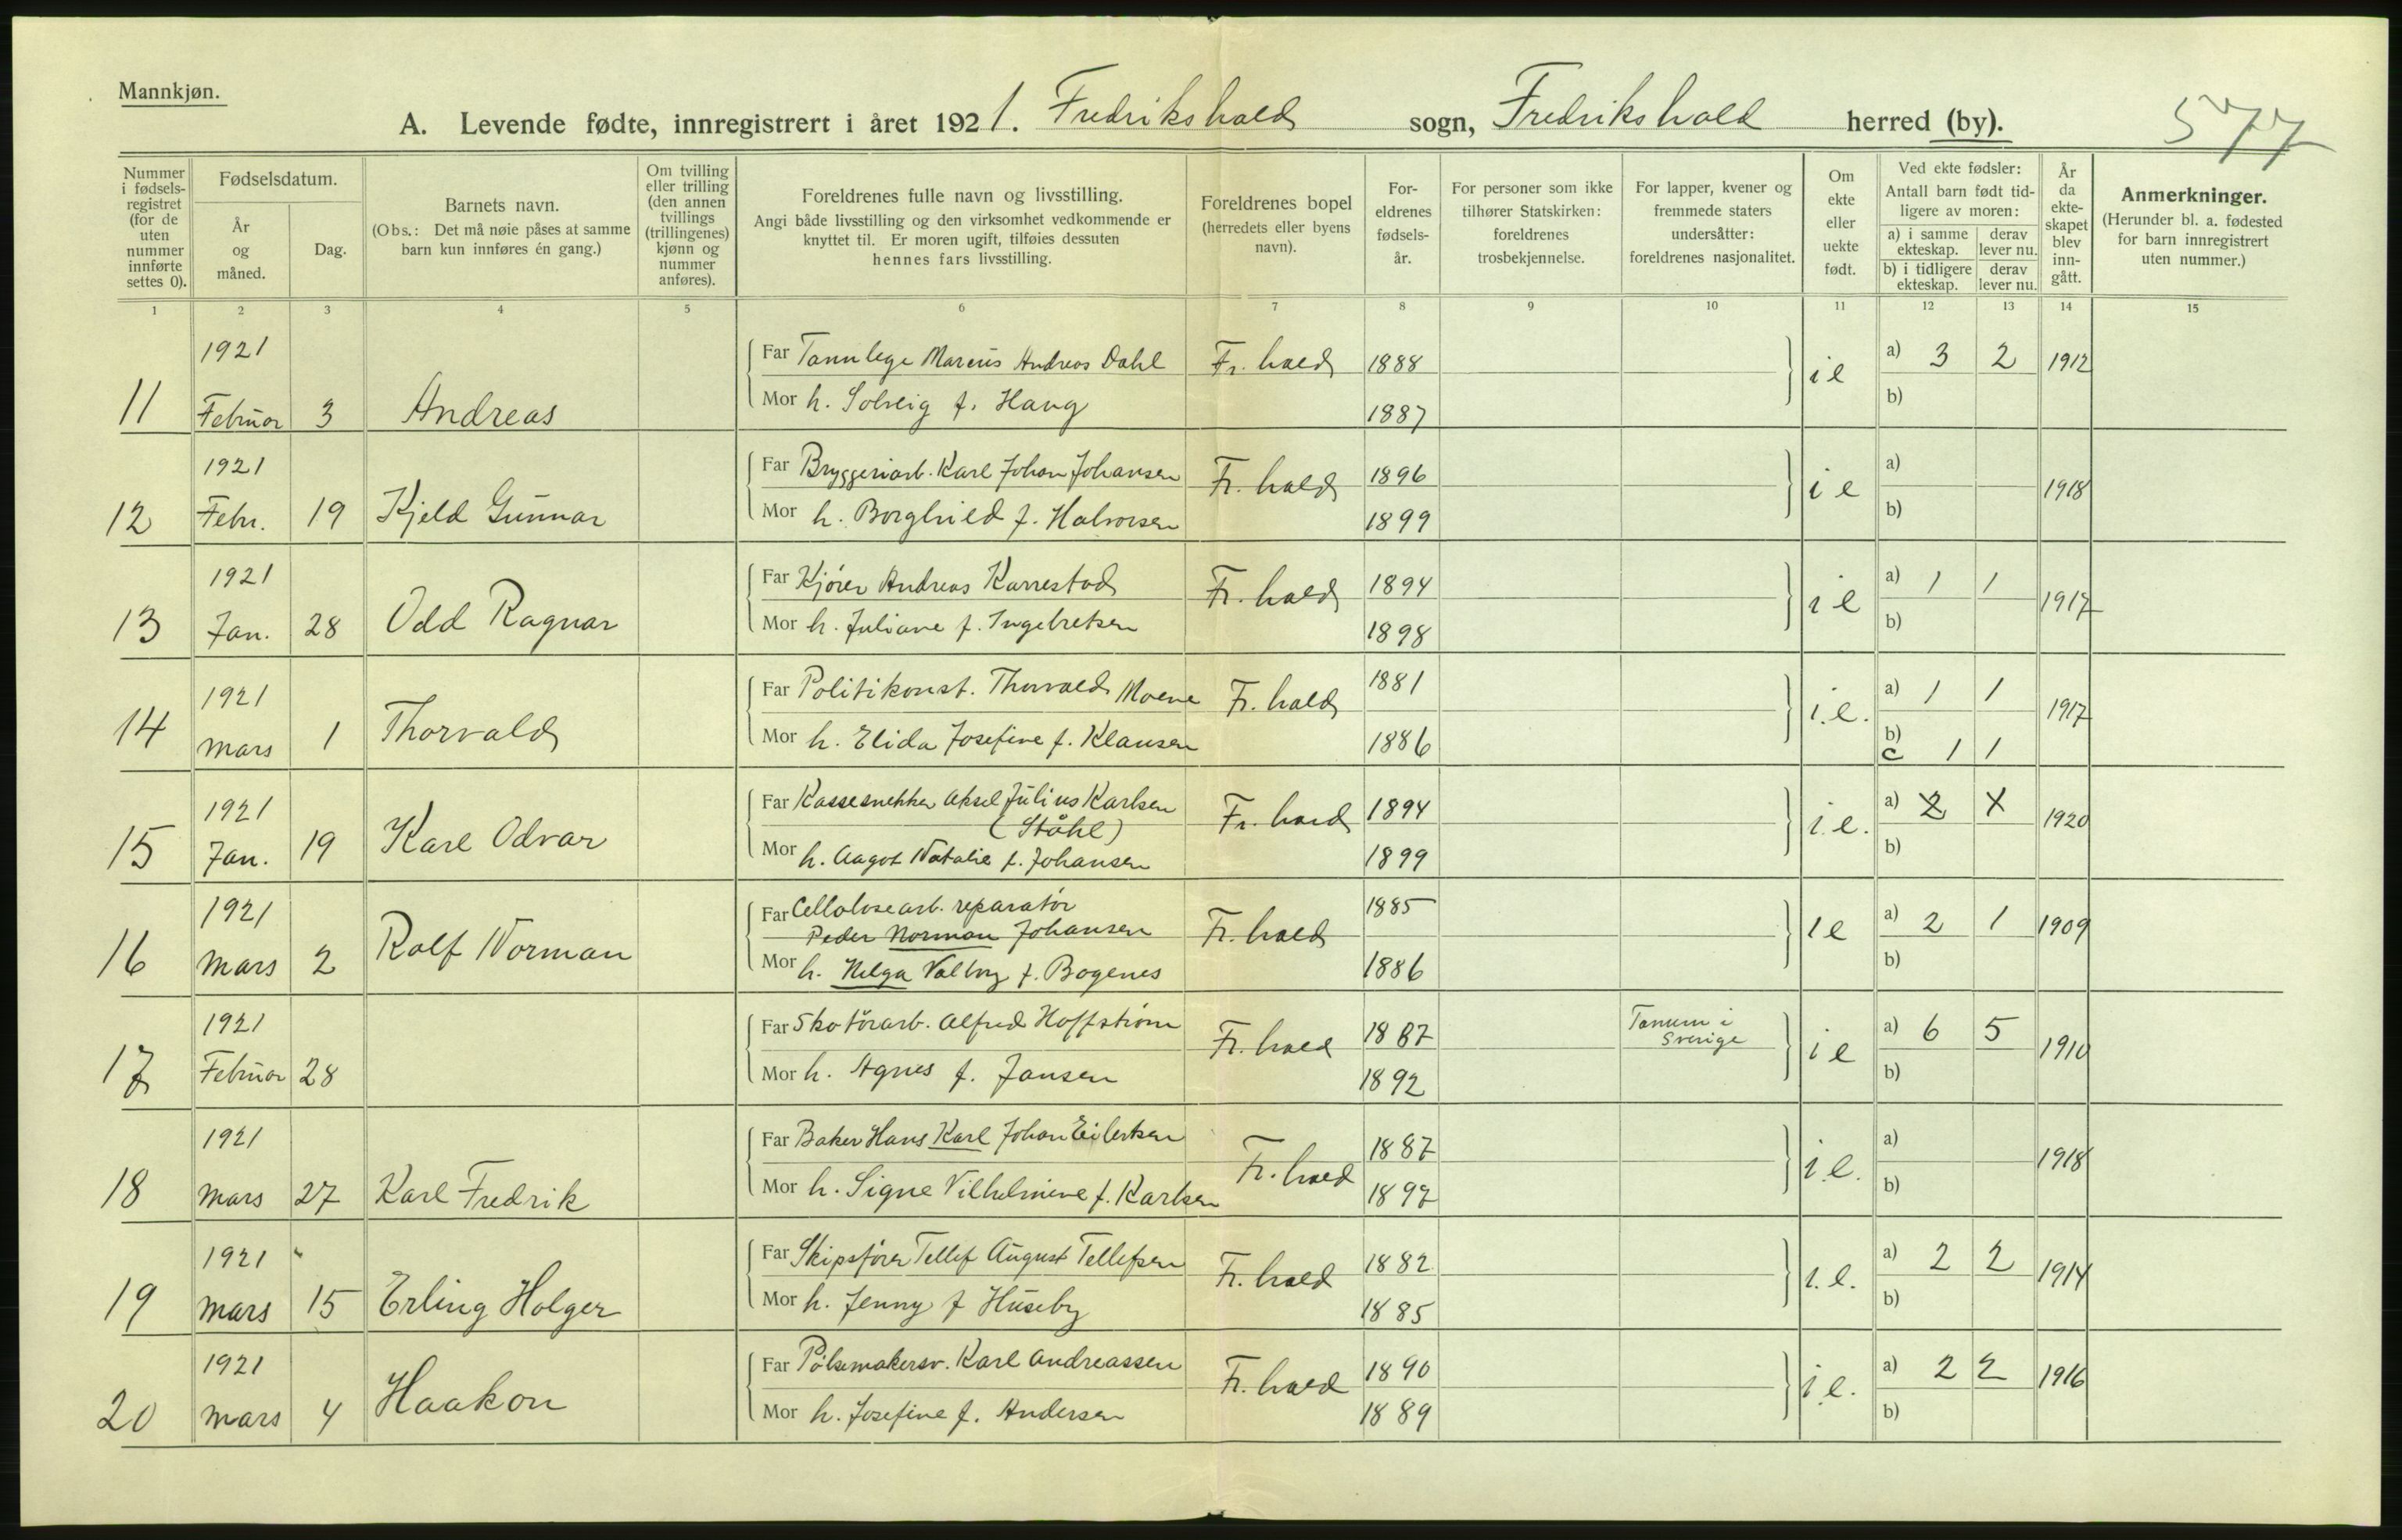 Mannkjøn.
A. Levende fødte, innregistrert i året 1921. Fredrikshald sogn, Fredrikshald herred (by). 577
Nummer i fødselsregistret (for de uten nummer innførte settes 0).
Fødselsdatum.
År og måned.
Dag.
Barnets navn.
(Obs.: Det må nøie påses at samme barn kun innføres én gang.)
Om tvilling eller trilling (den annen tvillings (trillingenes) kjønn og nummer anføres).
Foreldrenes fulle navn og livsstilling.
Angi både livsstilling og den virksomhet vedkommende er knyttet til. Er moren ugift, tilføies dessuten hennes fars livsstilling.
Foreldrenes bopel (herredets eller byens navn).
Foreldrenes fødselsår.
For personer som ikke tilhører Statskirken: foreldrenes trosbekjennelse.
For lapper, kvener og fremmede staters undersåtter: foreldrenes nasjonalitet.
Om ekte eller uekte født.
Ved ekte fødsler:
Antall barn født tidligere av moren:
a) i samme ekteskap. derav lever nu.
b) i tidligere ekteskap. derav lever nu.
År da ekteskapet blev inngått.
Anmerkninger.
(Herunder bl. a. fødested for barn innregistrert uten nummer.)
1 2 3 4 5 6 7 8 9 10 11 12 13 14 15
11 1921 Februar 3 Andreas
Far Tannlege Marcus Andreas Dahl Fr.hald 1888 i e a) 3 2 1912
Mor h. Solveig f. Haug 1887 b)
12 1921 Febr. 19 Kjeld Gunnar
Far Bryggeriarb. Karl Johan Johansen Fr.hald 1896 i e a) 1918
Mor h. Borghild f. Halvorsen 1899 b)
13 1921 Jan. 28 Odd Ragnar
Far Kjører Andreas Karrestad Fr.hald 1894 i e a) 1 1 1917
Mor h. Juliane f. Ingebretsen 1898 b)
14 1921 Mars 1 Thorvald
Far Politikonst. Thorvald Moene Fr.hald 1881 i.e. a) 1 1 1917
Mor h. Elida Josefine f. Klausen 1886 b) c 1 1
15 1921 Jan. 19 Karl Odvar
Far Kassesnekker Aksel Julius Karlsen Fr.hald 1894 i.e. a) 2 1920
(Ståhl)
Mor h. Aagot Natalie f. Johansen 1899 b)
16 1921 Mars 2 Rolf Norman
Far Cellolosearb. reparatør 1885
Peder Norman Johansen Fr.hald i e a) 2 1 1909
Mor h. Helga Valborg f. Bogenes 1886 b)
17 1921 Februar 28
Far Skotörarb. Alfred Hoffstrøm Fr.hald 1887 Tanum i Sverige i e a) 6 5 1910
Mor h. Agnes f. Jansen 1892 b)
18 1921 Mars 27 Karl Fredrik
Far Baker Hans Karl Johan Eilertsen Fr.hald 1887 i.e. a) 1918
Mor h. Signe Vilhelmine f. Karlsen 1897 b)
19 1921 Mars 15 Erling Holger
Far Skipsfører Tellef August Tellefsen Fr.hald 1882 i.e. a) 2 2 1914
Mor h. Jenny f Huseby 1885 b)
20 1921 Mars 4 Haakon
Far Pølsemakersv. Karl Andreassen Fr.hald 1890 i e. a) 2 2 1916
Mor h. Josefine f. Andersen 1889 b)